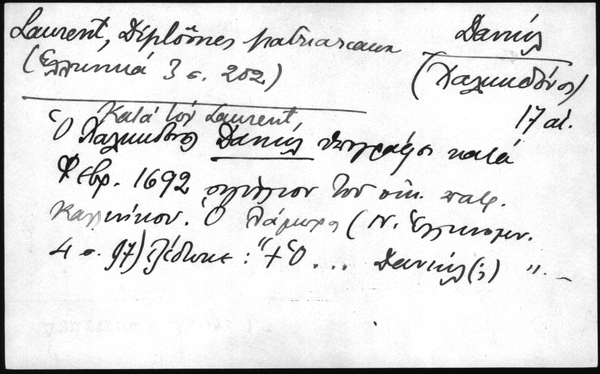 Laurent, Diplômes patriarcaux
(Ἑλληνικά 3 σ. 202)
Δανιήλ
(Χαλκηδόνος)
17 αἰ.
Κατά τόν Laurent
Ὁ Χαλκηδόνος Δανιήλ ὑπογράφει κατά
Φεβρ. 1692 σιγίλλιον τοῦ οἰκ. πατρ.
Καλλινίκου. Ὁ Λάμπρος (Ν. Ἑλληνομν.
4 σ. 97) ἐξέδωκε: "+Ὁ ... Δανιήλ(;) ". –